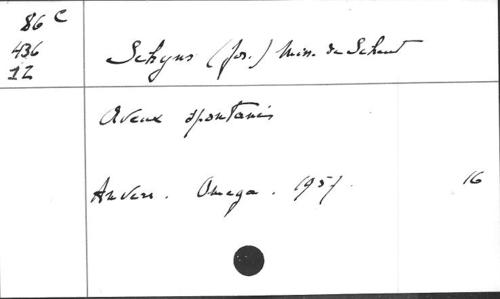 86 C
436
12
Schyns (Jos.) Miss. de Scheut
Aveux spontanés
Anvers. Omega. 1957.
16